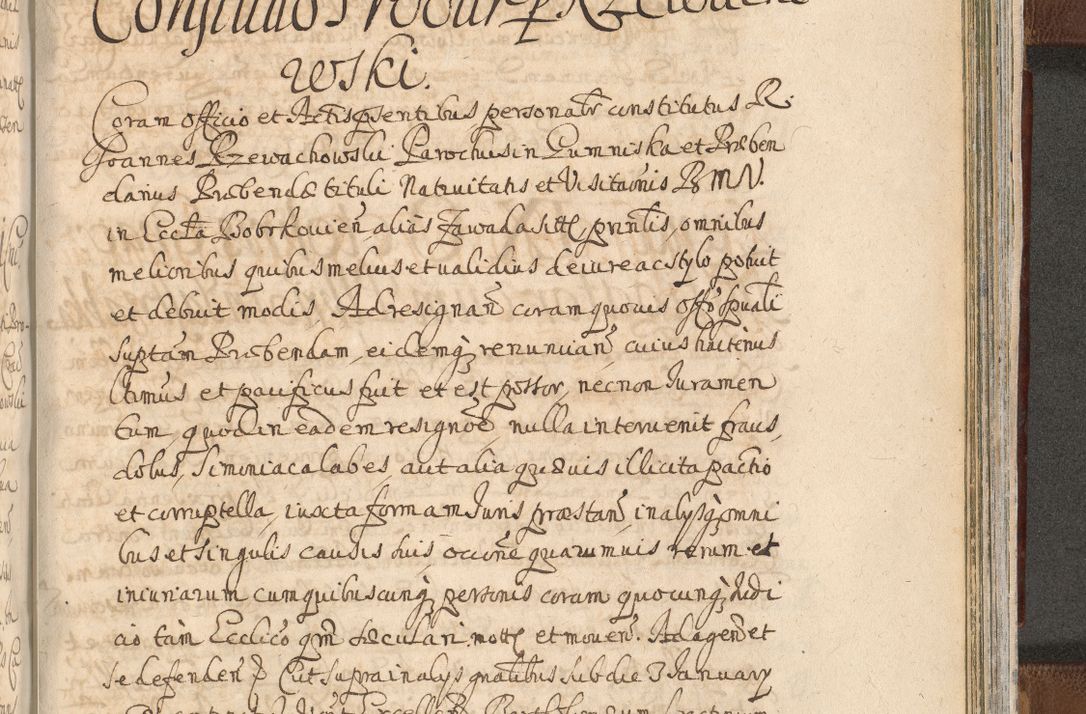 Constitutio Procur. P. Rzewucho
wski.
Coram Officio et Actis pńtibus personalr constitutus R.
Joannes Rzewachowski Parochus in Lumniska et Præben
darius Præbendæ tituli Nativitatis et Visitaōnis B M V.
in Eccła Bobrkovień alias Zawada sitt, prinlis, omnibus
melioribus quibus melius et validius de iure ac stylo potuit
et debuit modis, Ad resignań coram quovis Offō spuali
suptam Præbendam, eidemq renunciań cuius hactenus
ltimus et pacificus fuit et est possor, nec non Juramen
tum, quod in eadem resignōe, nulla intervenit fraus,
dolus, Simoniaca labes, aut alia quævis illicita pactio
et corruptella, iuxta formam Juris præstań, in alysq omni
bus et singulis causis suis, occōne quarumvis rerum et
iniuriarum cum quibuscunq personis coram quocunq Judi
cio tam Ecclīco qm sæculari mott et moveń. Ad agend et
se defendeń P Cut supra in alys gnalibus sub die 3 January